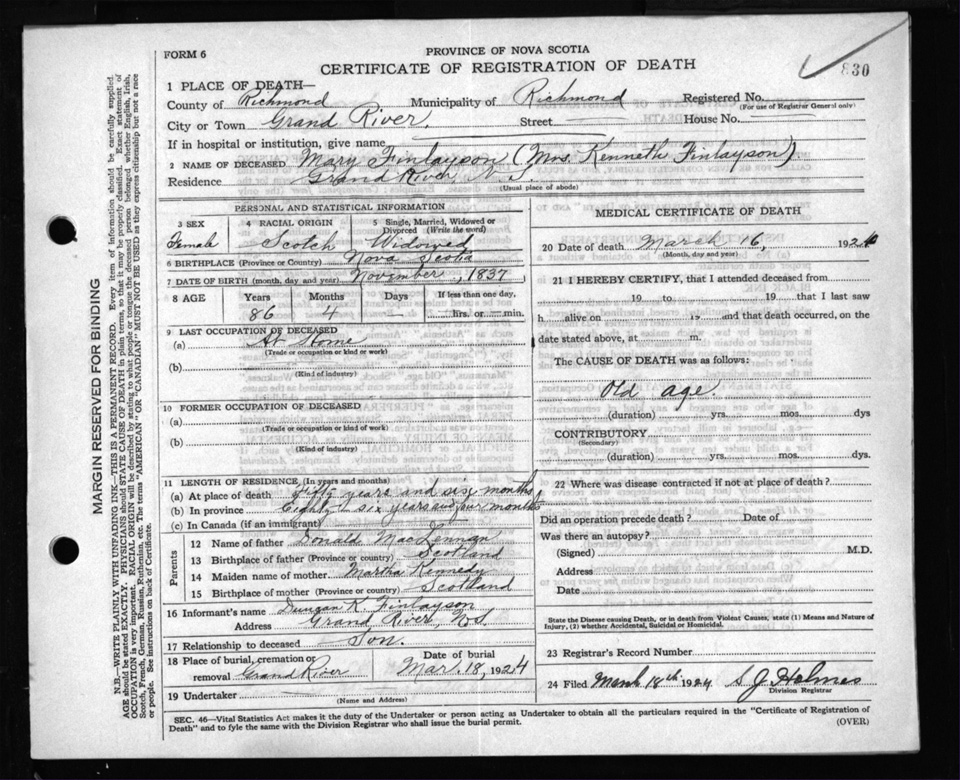 FORM 6
PROVINCE OF NOVA SCOTIA
CERTIFICATE OF REGISTRATION OF DEATH
830
1 PLACE OF DEATH—
County of Richmond Municipality of Richmond Registered No.
(For use of Registrar General only)
City or Town Grand River, Street House No.
If in hospital or institution, give name
2 NAME OF DECEASED Mary Finlayson (Mrs. Kenneth Finlayson)
Residence Grand River, N.S.
(Usual place of abode)
PERSONAL AND STATISTICAL INFORMATION
3 SEX Female
4 RACIAL ORIGIN Scotch
5 Single, Married, Widowed or Divorced (Write the word) Widowed
6 BIRTHPLACE (Province or Country) Nova Scotia
7 DATE OF BIRTH (month, day and year) November , 1837
8 AGE Years Months Days If less than one day,
86 4 — hrs. or min.
9 LAST OCCUPATION OF DECEASED
(a) At Home
(Trade or occupation or kind or work)
(b)
(Kind of industry)
10 FORMER OCCUPATION OF DECEASED
(a)
(Trade or occupation or kind of work)
(b)
(Kind of industry)
11 LENGTH OF RESIDENCE (In years and months)
(a) At place of death Fifty years and six months
(b) In province Eighty-six years and four months
(c) In Canada (if an immigrant)
Parents
12 Name of father Donald MacLennan
13 Birthplace of father (Province or country) Scotland
14 Maiden name of mother Martha Kennedy
15 Birthplace of mother (Province or country) Scotland
16 Informant's name Duncan K. Finlayson
Address Grand River, N.S.
17 Relationship to deceased Son.
18 Place of burial, cremation or removal Grand River
Date of burial Mar. 18, 1924
19 Undertaker
(Name and Address)
MEDICAL CERTIFICATE OF DEATH
20 Date of death March 16, 1924
(Month, day and year)
21 I HEREBY CERTIFY, that I attended deceased from
19 to 19 that I last saw
h alive on 19 and that death occurred, on the
date stated above, at m.
The CAUSE OF DEATH was as follows:
Old age.
(duration) yrs. mos. dys
CONTRIBUTORY
(Secondary)
(duration) yrs. mos. dys.
22 Where was disease contracted if not at place of death?
Did an operation precede death? Date of
Was there an autopsy?
(Signed) M.D.
Address
Date
State the Disease causing Death, or in death from Violent Causes, state (1) Means and Nature of
Injury, (2) whether Accidental, Suicidal or Homicidal.
23 Registrar's Record Number
24 Filed March 18th 1924 S J Holmes
Division Registrar
SEC. 46—Vital Statistics Act makes it the duty of the Undertaker or person acting as Undertaker to obtain all the particulars required in the "Certificate of Registration of
Death" and to fyle the same with the Division Registrar who shall issue the burial permit. (OVER)
MARGIN RESERVED FOR BINDING
N.B.—WRITE PLAINLY WITH UNFADING INK—THIS IS A PERMANENT RECORD. Every item of information should be carefully supplied.
AGE should be stated EXACTLY. PHYSICIANS should STATE CAUSE OF DEATH in plain terms, so that it may be properly classified. Exact statement of
OCCUPATION is very important. RACIAL ORIGIN will be described by stating to what people or tongue the deceased person belonged whether English, Irish,
Scotch, French, German, Russian, Ruthenian, etc. The terms "AMERICAN" OR "CANADIAN" MUST NOT BE USED as they express citizenship but not a race
or people. See instructions on back of Certificate.